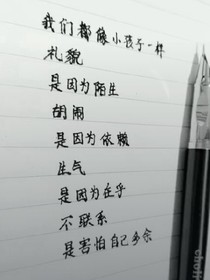 我们都像小孩子一样
礼貌
是因为陌生
胡闹
是因为依赖
生气
是因为在乎
不联系
是害怕自己多余